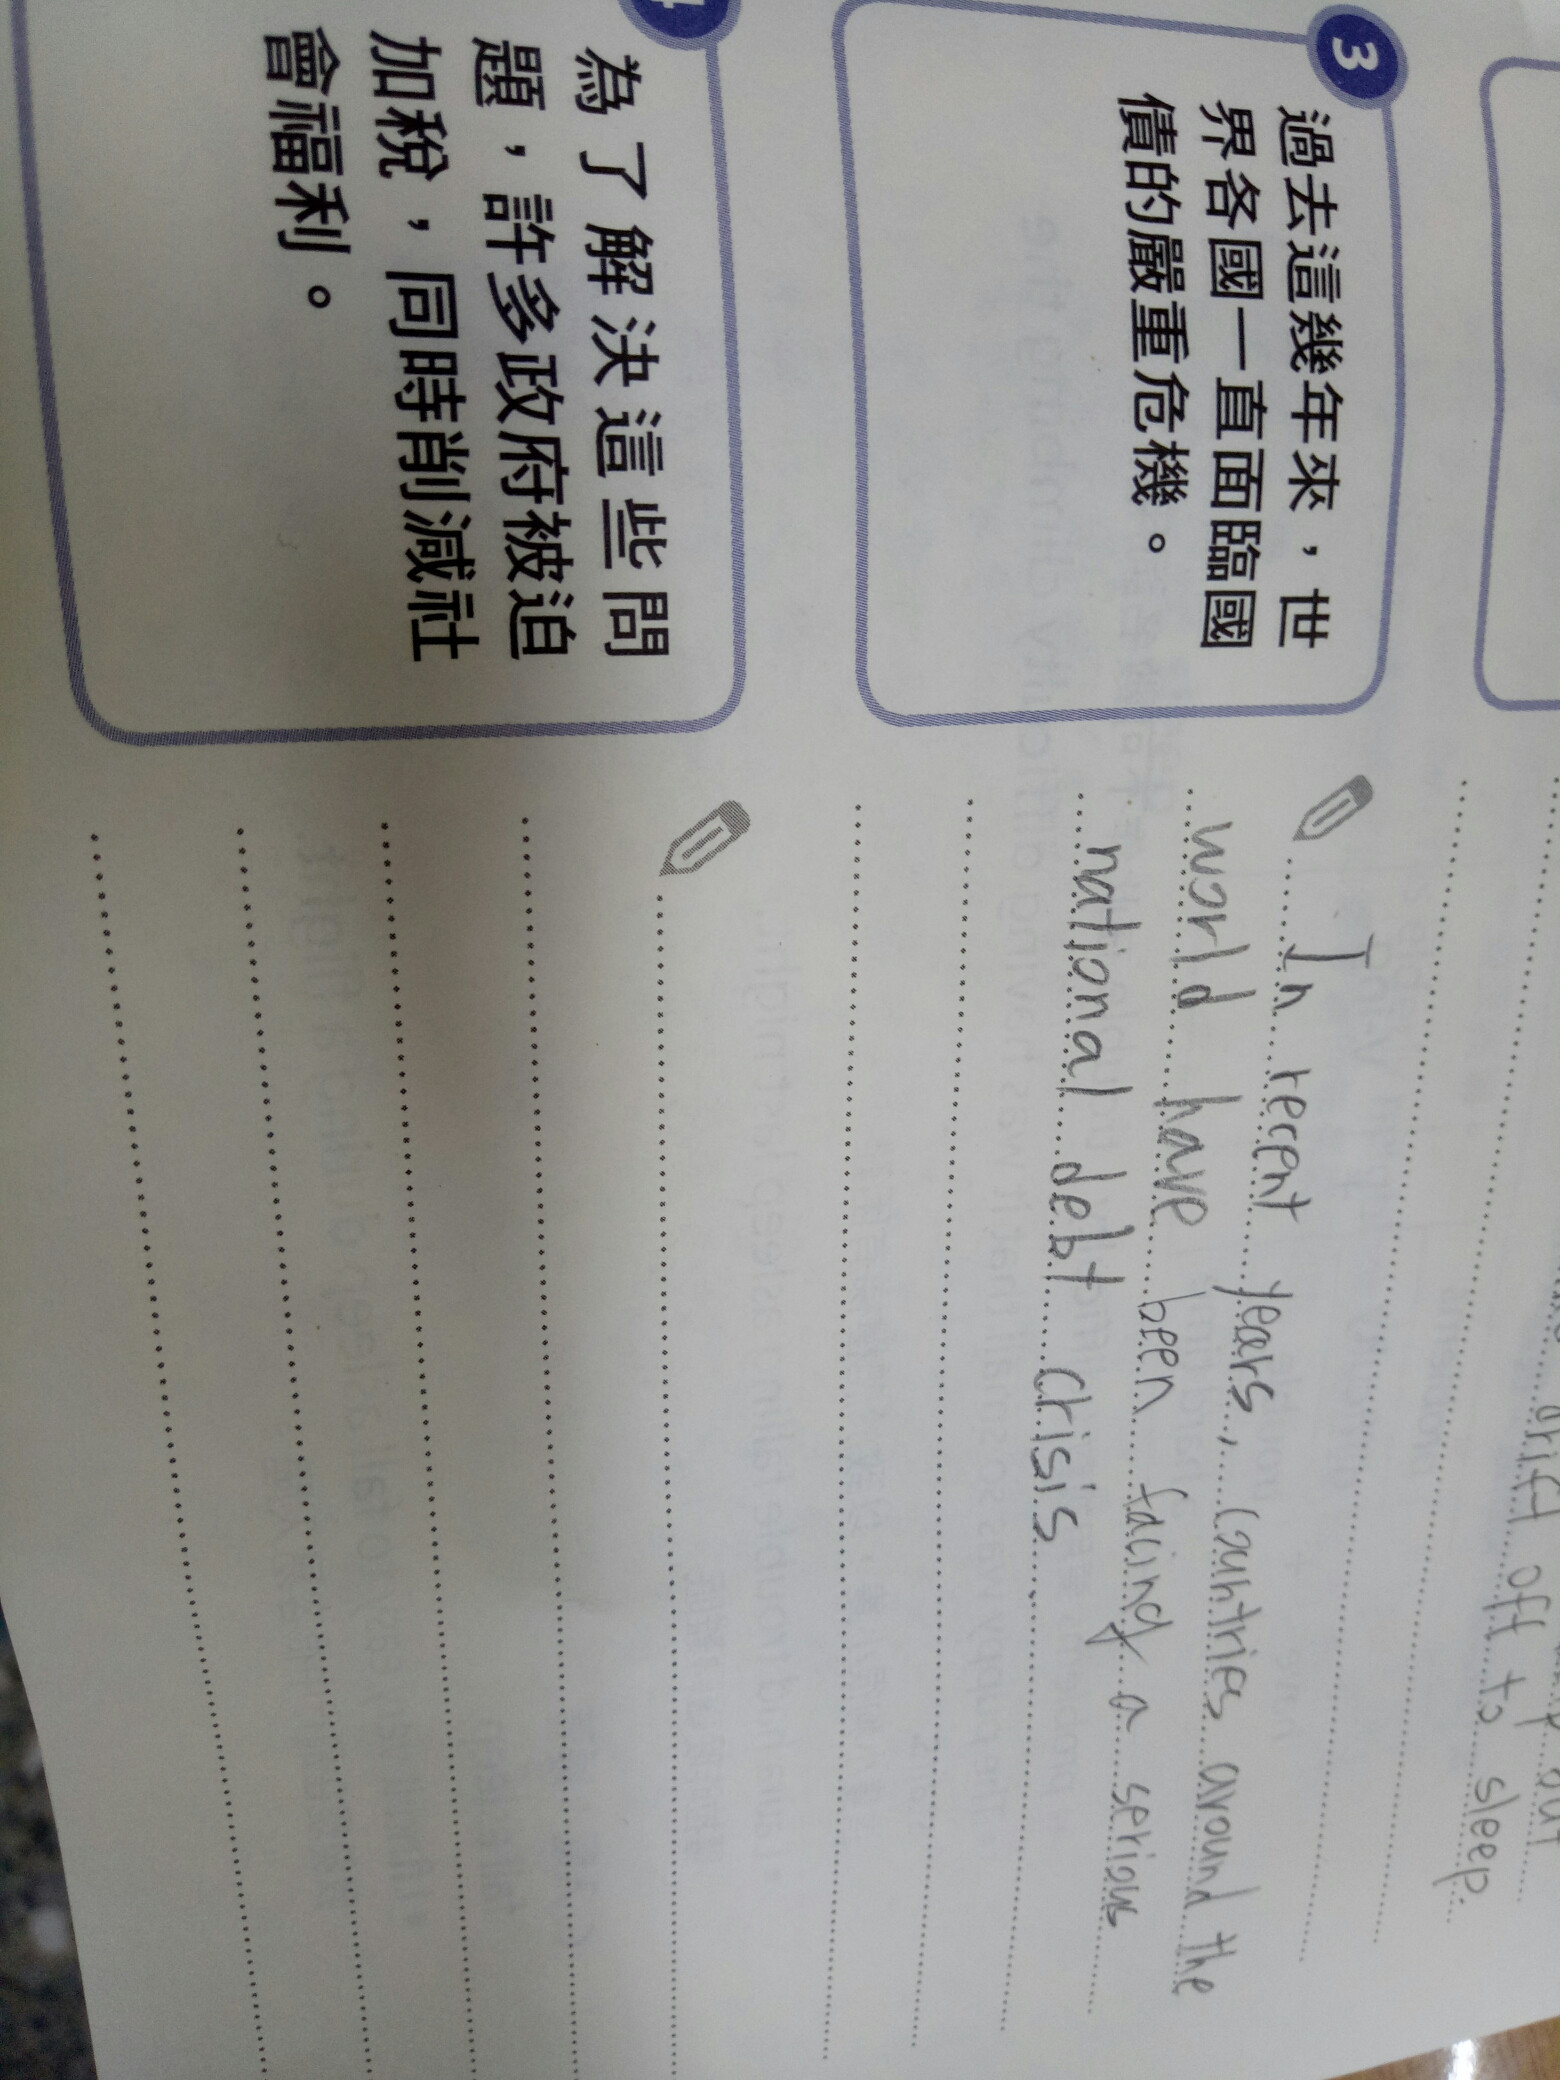 drift off to sleep.
3
過去這幾年來，世
界各國一直面臨國
債的嚴重危機。
In recent years, countries around the
world have been facing a serious
national debt crisis
4
為了解決這些問
題，許多政府被迫
加稅，同時削減社
會福利。